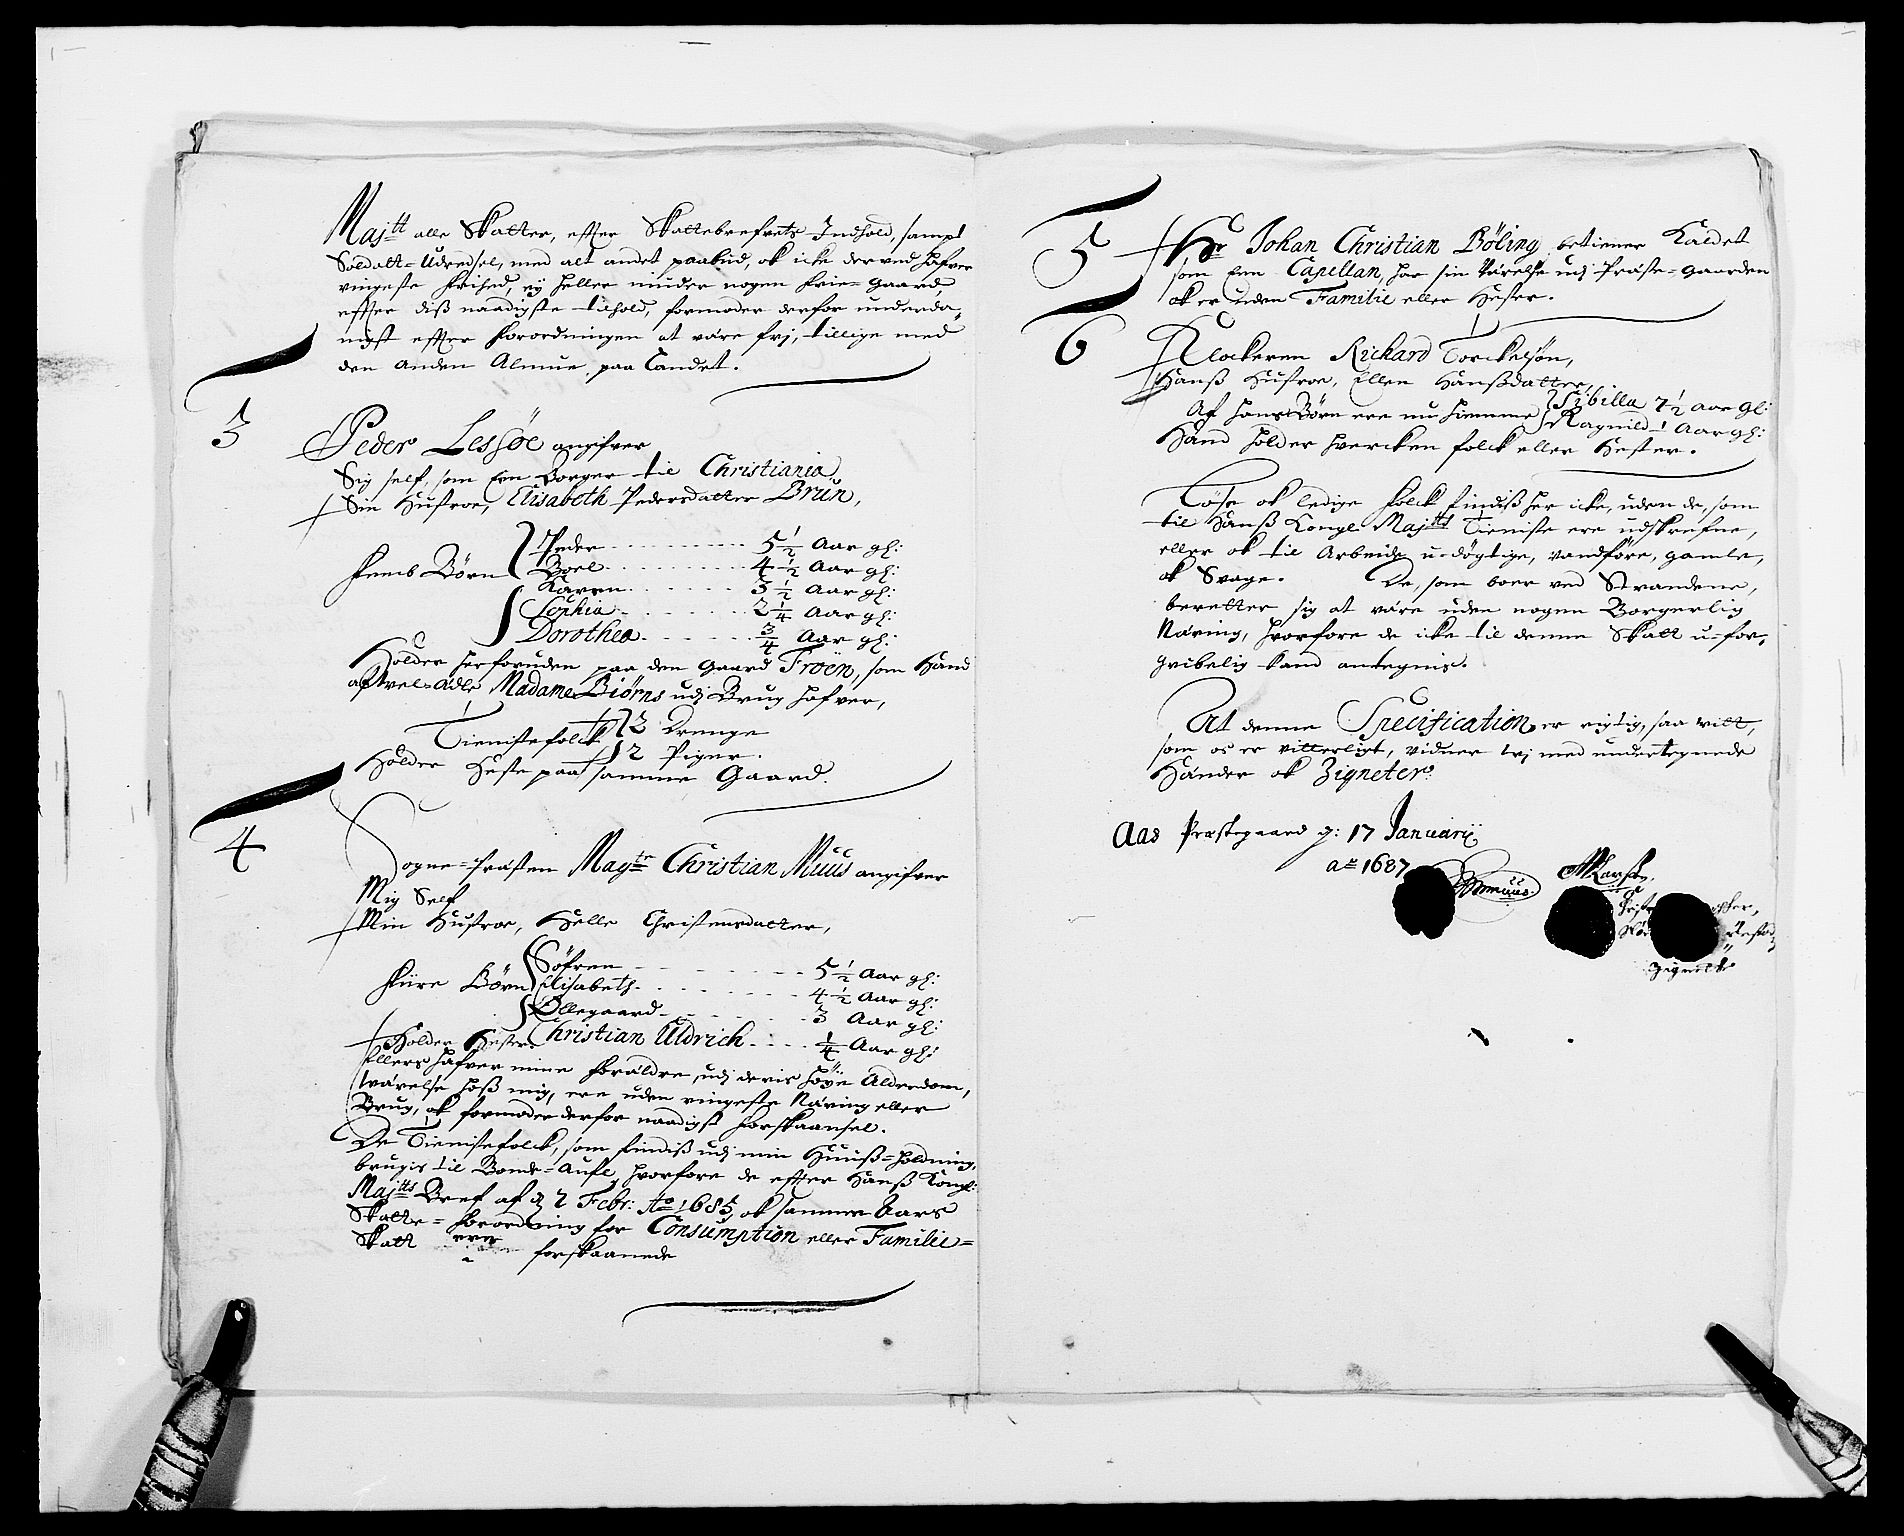 Majtt alle Skatter, effter Skattebrefvets Indhold, sampt
Soldatt-Udredsel, med alt andet paabud, ok icke derved hafver
ringeste frihed, ej heller nüder nogen frie-Gaard,
effter diß naadigste tilhold, formoder derfor underda-
nigst effter forordningen at være frj, tillige med
den anden Almue paa Landet.
3
Peder Lessøe angifver
Sig self, som Een Borger til Christiania
Sin Hustroe, Elisabeth Pedersdatter Brün,
Peder 5 1/2 Aar gl:
Femb Børn Boel 4 1/2 Aar gl:
Karen 3 1/2 Aar gl:
Sophia 2 1/4 Aar gl:
Dorothea 3/4 Aar gl:
Holder herforuden paa den Gaard Froen, som Hand
aff Vel-Adle Madame Biørns udj Brug hafver,
Tienistefolck 2 Drenge
2 Piger.
Holder Heste paa samme Gaard.
4
Sogne-Præsten Magtr Christian Muus angifver
Mig Self
Min Hustroe, Helle Christensdatter,
Söfren 5 1/2 Aar gl:
Fiire Børn Elisabeth 4 1/2 Aar gl:
Øllegaard 3 Aar gl:
Christian Uldrich 1/4 Aar gl:
Holder Hester.
Ellers hafver mine forældre, udj deris høye Alderdom,
Værelse hoß mig, ere uden ringeste Næring eller
Brug, ok formoder derfor naadigst forskaansel.
De Tienistefolck, som findiß udj min Huuß-holdning,
brugis til Bonde-Aufl, hvorfore de effter Hanß Kongl:
Majtts Bref af d 7 Febr: Ao 1685, ok samme Aars
Skatte-forordning for Consumption eller Familie-
Skatt ere forskaanede
5
Hr Johan Christian Böling betiener Kaldet
som Een Capellan, har sin Værelse udj Præste-Gaarden
ok er uden Familie eller Hester.
6
Klockeren Richard Torckelsøn,
Hanß Hustroe, Ellen Hanßdatter,
Af hans Børn ere nu hiemme Sibilla 7 1/2 Aar gl:
Ragnild 1 Aar gl:
Hand holder hvercken folck eller Hester.
Løse ok ledige folck findiß her icke, uden de, som
til Hanß Kongl Majtts Tieniste ere udskrefne,
eller ok til Arbeide u-dögtige, vandföre, gamle,
ok Svage. De, som boer ved Strandene,
beretter sig at være uden nogen Borgerlig
Næring, hvorfore de icke til denne Skatt u-for-
gribelig kand antegnis.
At denne Specification er rigtig, saa vilt,
som os er vitterligt, vidner wj med undertegnede
Hænder ok Zigneter.
Aas Præstegaard d: 17 Januarij
ao 1687
CMMuus.